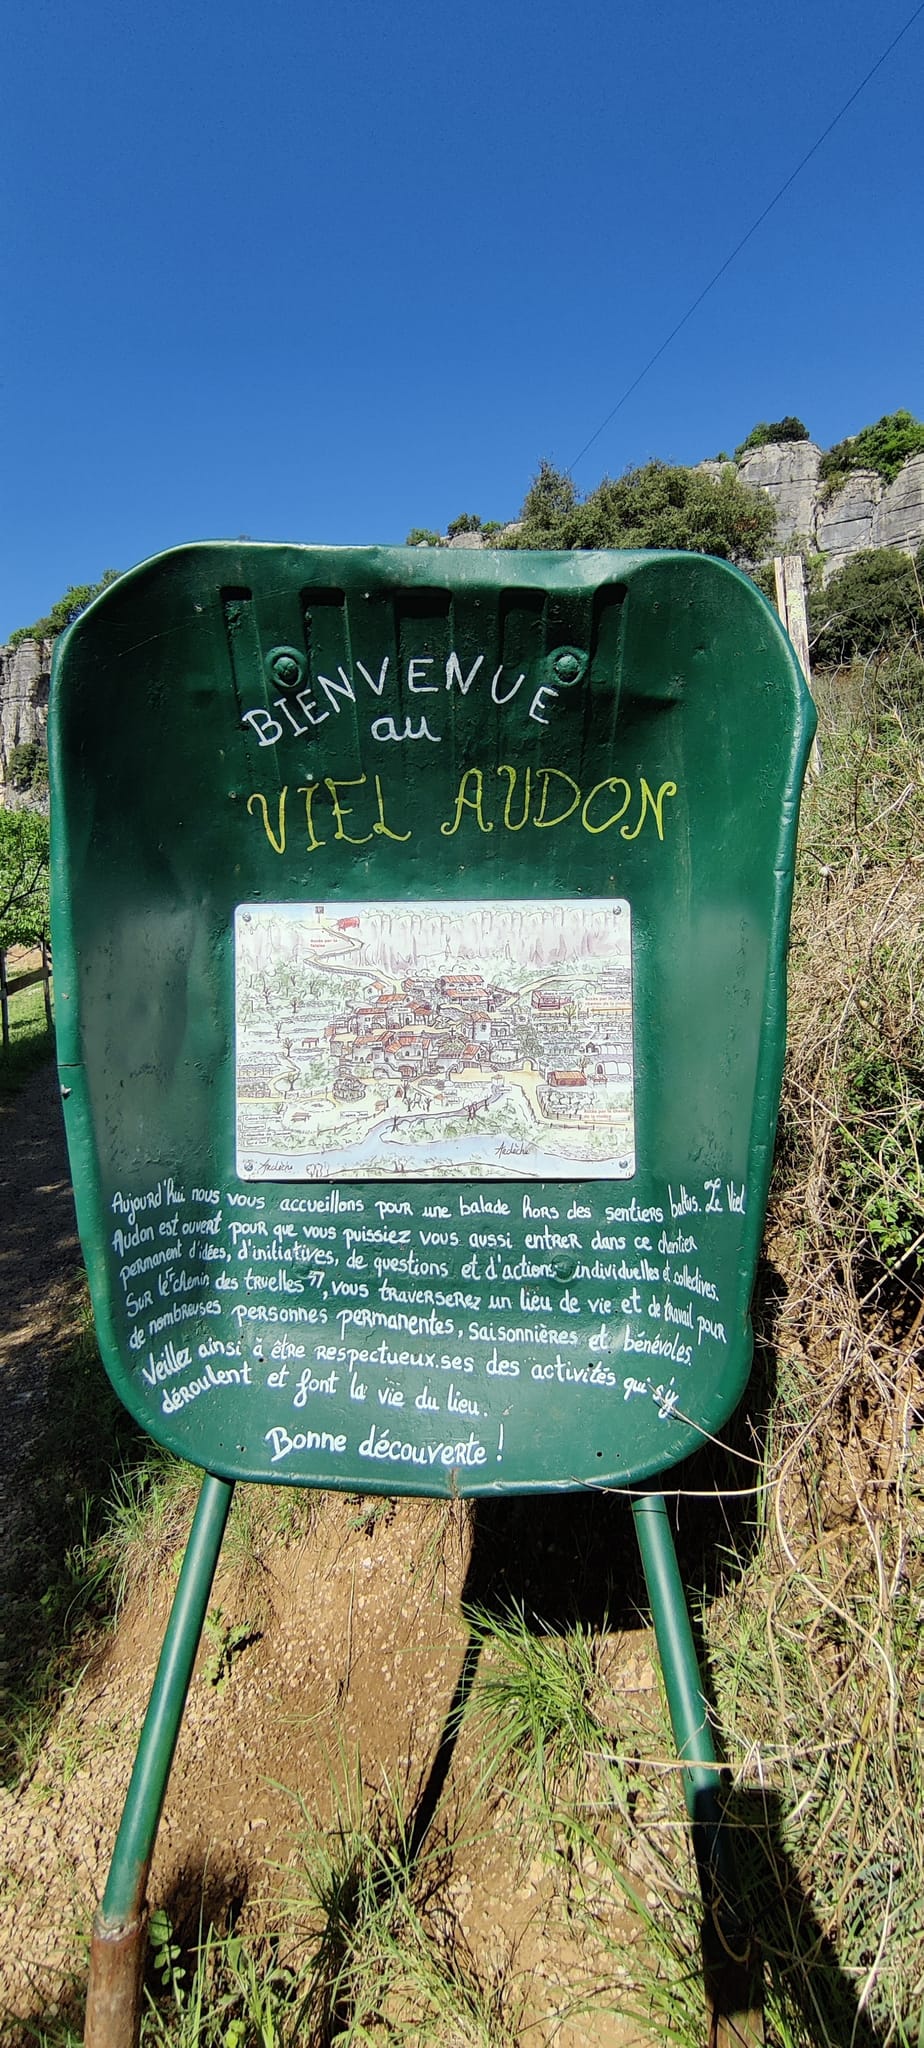 BIENVENUE
au
VIEL AUDON
Accès par la
falaise
Ardèche
Ardèche
Aujourd'hui nous vous accueillons pour une balade hors des sentiers battus. Le Viel
Audon est ouvert pour que vous puissiez vous aussi entrer dans ce chantier
permanent d'idées, d'initiatives, de questions et d'actions individuelles et collectives.
Sur le "chemin des truelles", vous traverserez un lieu de vie et de travail pour
de nombreuses personnes permanentes, saisonnières et bénévoles.
Veillez ainsi à être respectueux.ses des activités qui s'y
déroulent et font la vie du lieu.
Bonne découverte !